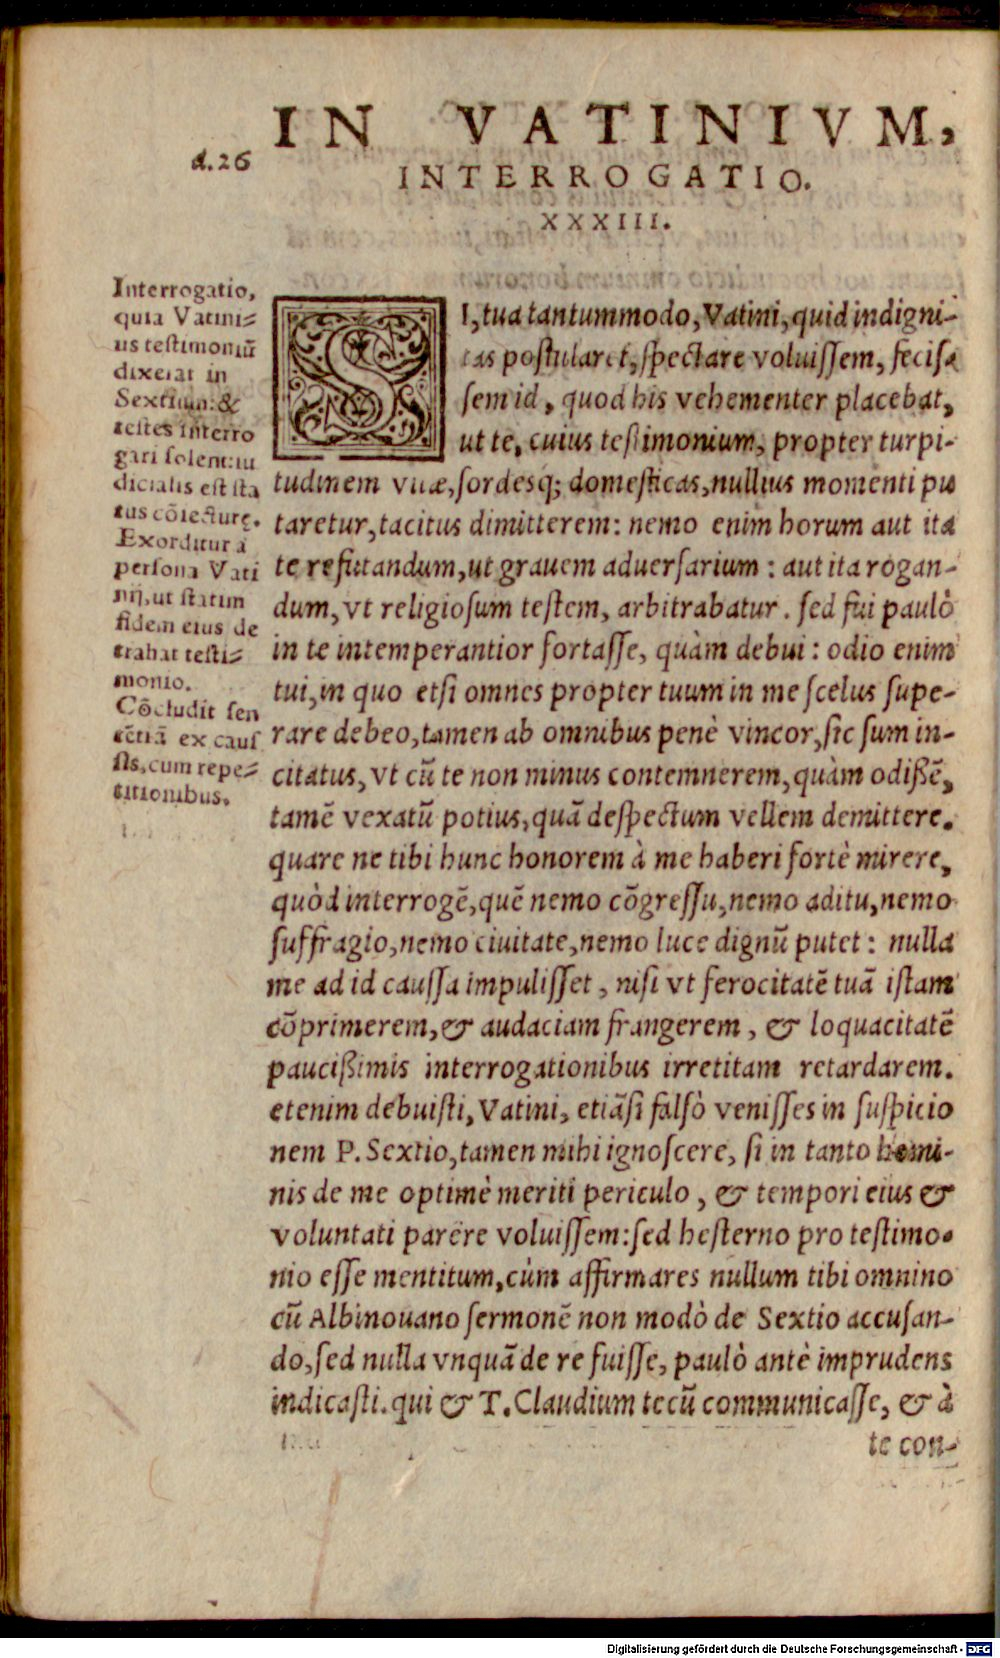 IN VATINIVM,
d.26
INTERROGATIO.
XXXIII.
Interrogatio,
quia Vatini=
us testimoniũ
dixerat in
Sextium: &
testes interro
gari solent: iu
dicialis est sta
tus cõiecturę.
Exorditur à
persona Vati
nij, ut statim
fidem eius de
trahat testi=
monio.
Cõcludit sen
tẽtiã ex cauſ
sis, cum repe=
titionibus.
SI, tua tantummodo, Vatini, quid indigni-
tas poſtularet, ſpectare voluiſſem, feciſ-
ſem id, quod his vehementer placebat,
ut te, cuius teſtimonium, propter turpi-
tudinem vitæ, ſordesq́; domeſticas, nullius momenti pu
taretur, tacitus dimitterem: nemo enim horum aut ita
te refutandum, ut grauem aduerſarium: aut ita rogan-
dum, vt religioſum teſtem, arbitrabatur. ſed fui paulò
in te intemperantior fortaſſe, quàm debui: odio enim
tui, in quo etſi omnes propter tuum in me ſcelus ſupe-
rare debeo, tamen ab omnibus penè vincor, ſic ſum in-
citatus, vt cũ te non minus contemnerem, quàm odißẽ,
tamẽ vexatũ potius, quã deſpectum vellem demittere.
quare ne tibi hunc honorem à me haberi fortè mirere,
quòd interrogẽ, quẽ nemo cõgreſſu, nemo aditu, nemo
ſuffragio, nemo ciuitate, nemo luce dignũ putet: nulla
me ad id cauſſa impuliſſet, niſi vt ferocitatẽ tuã iſtam
cõprimerem, & audaciam frangerem, & loquacitatẽ
paucißimis interrogationibus irretitam retardarem.
etenim debuiſti, Vatini, etiãſi falſò veniſſes in ſuſpicio
nem P. Sextio, tamen mihi ignoſcere, ſi in tanto homi-
nis de me optimè meriti periculo, & tempori eius &
voluntati parere voluiſſem: ſed heſterno pro teſtimo-
nio eſſe mentitum, cùm affirmares nullum tibi omnino
cũ Albinouano ſermonẽ non modò de Sextio accuſan-
do, ſed nulla vnquã de re fuiſſe, paulò antè imprudens
indicaſti. qui & T. Claudium tecũ communicaſſe, & à
te con-
Digitalisierung gefördert durch die Deutsche Forschungsgemeinschaft - DFG